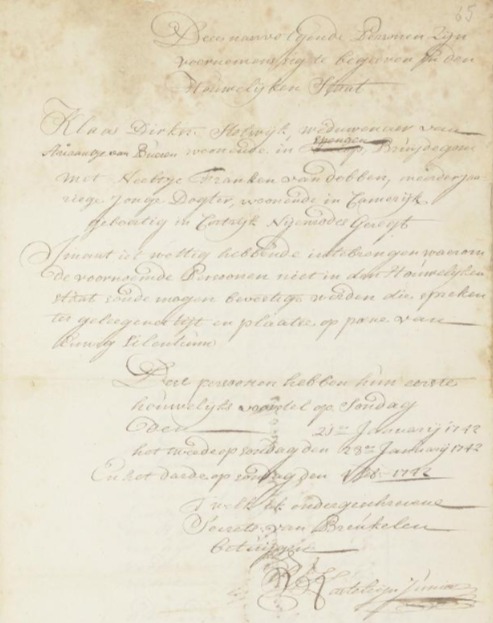 65
Deese navolgende Persoonen zijn
voorneemens sig te begeeven in den
Houwelijken Staat
Klaas Dirksz Slotwijk, weduwenaer van
van Bueren woonende in Spengen
met Neeltje Franken van dobben, meerderja
riege Jonge Dogter, woonende in Camerijk
geboortig in Cortrijk Nijenrodes Geregt
Jmant iet wettig hebbende intebrengen waerom
de voornoemde Persoonen niet in den Houwelijken
Staat soude mogen bevestigt werden die spreken
ter geleegener tijt en plaatse op pæne van
Eeuwig Silentium
Dese persoonen hebben hun eerste
houwelijks voorstel op Sondag
Den 21en Januarij 1742
het tweede op sondag den 28en Januarij 1742
En het darde op sondag den 1742
T welk ik ondergeschreeve
Secrets. van Breukelen
betuijge